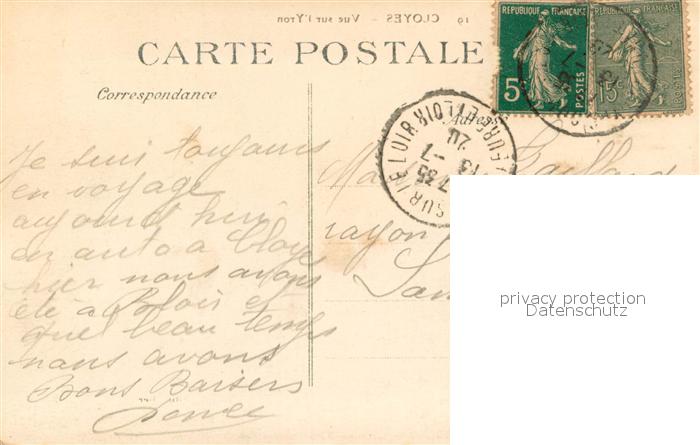 19 CLOYES - Vue sur l'Yron
CARTE POSTALE
REPUBLIQUE FRANÇAISE
REPUBLIQUE FRANÇAISE
5c POSTES
15c
Correspondance
Adresse
SUR LE LOIR EURE ET LOIR
7 35
13 -7
20
Je suis toujours
en voyage
aujourd'hui
en auto a Cloyes
hier nous avons
été a Blois et
quel beau temps
nous avons
Bons Baisers
rayon
privacy protection
Datenschutz